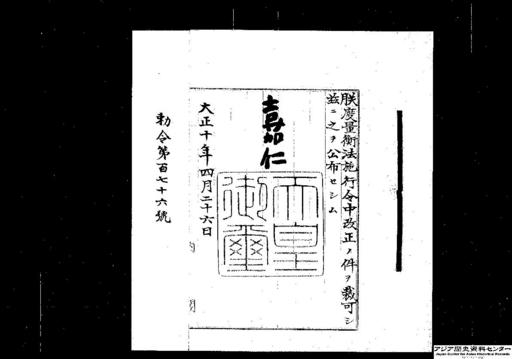 朕度量衡法施行令中改正ノ件ヲ裁可シ
茲ニ之ヲ公布セシム
嘉仁
天皇御璽
大正十年四月二十六日
内閣
勅令第百七十六號
アジア歴史資料センター
Japan Center for Asian Historical Records